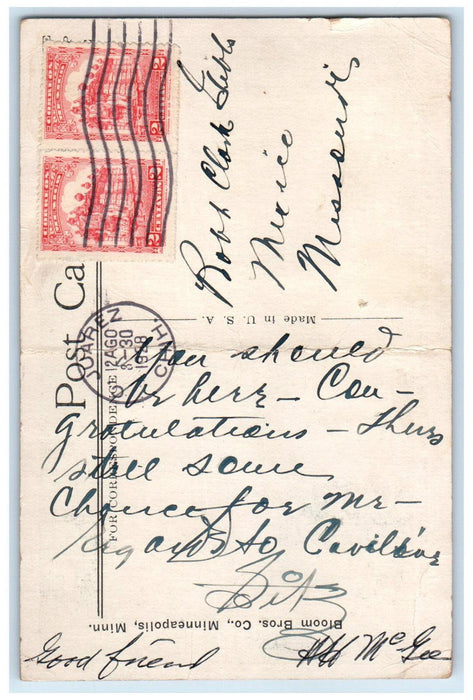 Robt Clark Gibbs
Mexico
Missouri
Made in U. S. A.
Post Ca
FOR CORRESPONDENCE
JUAREZ
12 AGO
3-30
CHIH.
You should
be here – Con-
gratulations – Theres
still some
Chance for me –
regards to
Fitz
Bloom Bros. Co., Minneapolis, Minn.
Good friend McGee